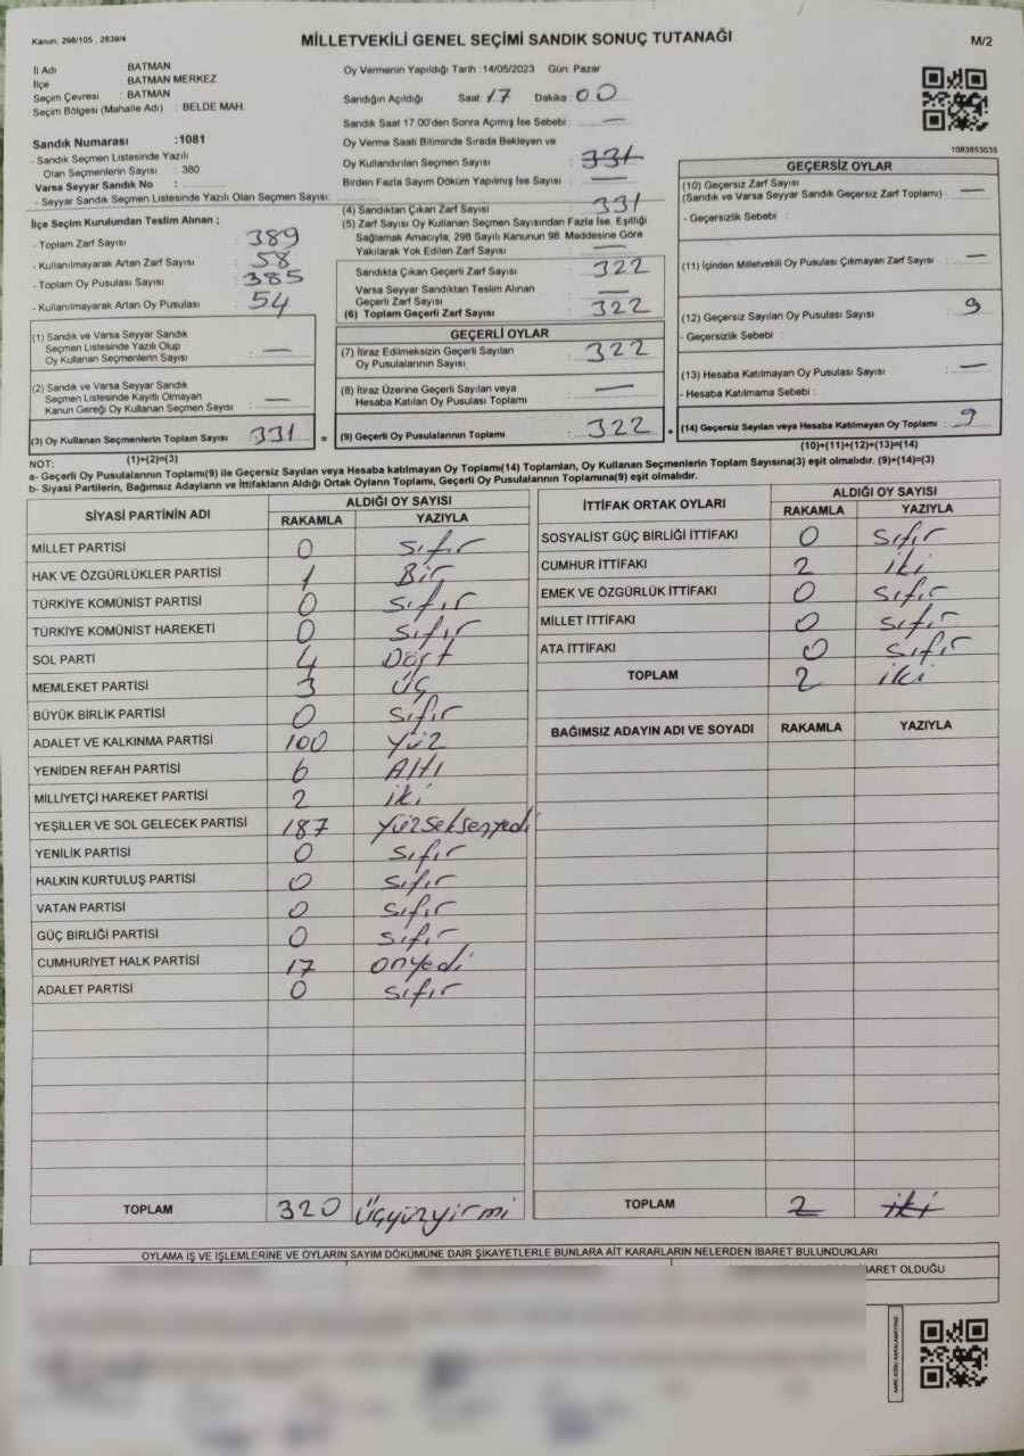 Kanun; 298/105 , 2839/4
MİLLETVEKİLİ GENEL SEÇİMİ SANDIK SONUÇ TUTANAĞI
M/2
İl Adı BATMAN
İlçe BATMAN MERKEZ
Seçim Çevresi : BATMAN
Seçim Bölgesi (Mahalle Adı) : BELDE MAH.
Sandık Numarası :1081
- Sandık Seçmen Listesinde Yazılı
Olan Seçmenlerin Sayısı : 380
Varsa Seyyar Sandık No :
- Seyyar Sandık Seçmen Listesinde Yazılı Olan Seçmen Sayısı:
İlçe Seçim Kurulundan Teslim Alınan ;
- Toplam Zarf Sayısı : 389
- Kullanılmayarak Artan Zarf Sayısı : 58
- Toplam Oy Pusulası Sayısı : 385
- Kullanılmayarak Artan Oy Pusulası : 54
(1) Sandık ve Varsa Seyyar Sandık
Seçmen Listesinde Yazılı Olup
Oy Kullanan Seçmenlerin Sayısı : —
(2) Sandık ve Varsa Seyyar Sandık
Seçmen Listesinde Kayıtlı Olmayan
Kanun Gereği Oy Kullanan Seçmen Sayısı : —
(3) Oy Kullanan Seçmenlerin Toplam Sayısı : 331
(1)+(2)=(3)
Oy Vermenin Yapıldığı Tarih :14/05/2023 Gün: Pazar
Sandığın Açıldığı Saat: 17 Dakika: 00
Sandık Saat 17.00'den Sonra Açılmış İse Sebebi : —
Oy Verme Saati Bitiminde Sırada Bekleyen ve
Oy Kullandırılan Seçmen Sayısı : 331
Birden Fazla Sayım Döküm Yapılmış İse Sayısı : —
(4) Sandıktan Çıkan Zarf Sayısı : 331
(5) Zarf Sayısı Oy Kullanan Seçmen Sayısından Fazla İse, Eşitliği
Sağlamak Amacıyla, 298 Sayılı Kanunun 98. Maddesine Göre
Yakılarak Yok Edilen Zarf Sayısı : —
Sandıkta Çıkan Geçerli Zarf Sayısı : 322
Varsa Seyyar Sandıktan Teslim Alınan
Geçerli Zarf Sayısı : —
(6) Toplam Geçerli Zarf Sayısı : 322
GEÇERLİ OYLAR
(7) İtiraz Edilmeksizin Geçerli Sayılan
Oy Pusulalarının Sayısı : 322
(8) İtiraz Üzerine Geçerli Sayılan veya
Hesaba Katılan Oy Pusulası Toplamı : —
= (9) Geçerli Oy Pusulalarının Toplamı : 322
1083853035
GEÇERSİZ OYLAR
(10) Geçersiz Zarf Sayısı
(Sandık ve Varsa Seyyar Sandık Geçersiz Zarf Toplamı) : —
- Geçersizlik Sebebi :
(11) İçinden Milletvekili Oy Pusulası Çıkmayan Zarf Sayısı : —
(12) Geçersiz Sayılan Oy Pusulası Sayısı : 9
- Geçersizlik Sebebi :
(13) Hesaba Katılmayan Oy Pusulası Sayısı : —
- Hesaba Katılmama Sebebi :
+ (14) Geçersiz Sayılan veya Hesaba Katılmayan Oy Toplamı : 9
(10)+(11)+(12)+(13)=(14)
NOT:
a- Geçerli Oy Pusulalarının Toplamı(9) ile Geçersiz Sayılan veya Hesaba katılmayan Oy Toplamı(14) Toplamları, Oy Kullanan Seçmenlerin Toplam Sayısına(3) eşit olmalıdır. (9)+(14)=(3)
b- Siyasi Partilerin, Bağımsız Adayların ve İttifakların Aldığı Ortak Oyların Toplamı, Geçerli Oy Pusulalarının Toplamına(9) eşit olmalıdır.
SİYASİ PARTİNİN ADI ALDIĞI OY SAYISI
RAKAMLA YAZIYLA
MİLLET PARTİSİ 0 sıfır
HAK VE ÖZGÜRLÜKLER PARTİSİ 1 Bir
TÜRKİYE KOMÜNİST PARTİSİ 0 sıfır
TÜRKİYE KOMÜNİST HAREKETİ 0 sıfır
SOL PARTİ 4 Dört
MEMLEKET PARTİSİ 3 üç
BÜYÜK BİRLİK PARTİSİ 0 sıfır
ADALET VE KALKINMA PARTİSİ 100 yüz
YENİDEN REFAH PARTİSİ 6 Altı
MİLLİYETÇİ HAREKET PARTİSİ 2 iki
YEŞİLLER VE SOL GELECEK PARTİSİ 187 yüzseksenyedi
YENİLİK PARTİSİ 0 sıfır
HALKIN KURTULUŞ PARTİSİ 0 sıfır
VATAN PARTİSİ 0 sıfır
GÜÇ BİRLİĞİ PARTİSİ 0 sıfır
CUMHURİYET HALK PARTİSİ 17 onyedi
ADALET PARTİSİ 0 sıfır
TOPLAM 320 üçyüzyirmi
İTTİFAK ORTAK OYLARI ALDIĞI OY SAYISI
RAKAMLA YAZIYLA
SOSYALİST GÜÇ BİRLİĞİ İTTİFAKI 0 sıfır
CUMHUR İTTİFAKI 2 iki
EMEK VE ÖZGÜRLÜK İTTİFAKI 0 sıfır
MİLLET İTTİFAKI 0 sıfır
ATA İTTİFAKI 0 sıfır
TOPLAM 2 iki
BAĞIMSIZ ADAYIN ADI VE SOYADI RAKAMLA YAZIYLA
TOPLAM 2 iki
OYLAMA İŞ VE İŞLEMLERİNE VE OYLARIN SAYIM DÖKÜMÜNE DAİR ŞİKAYETLERLE BUNLARA AİT KARARLARIN NELERDEN İBARET BULUNDUKLARI
BARET OLDUĞU